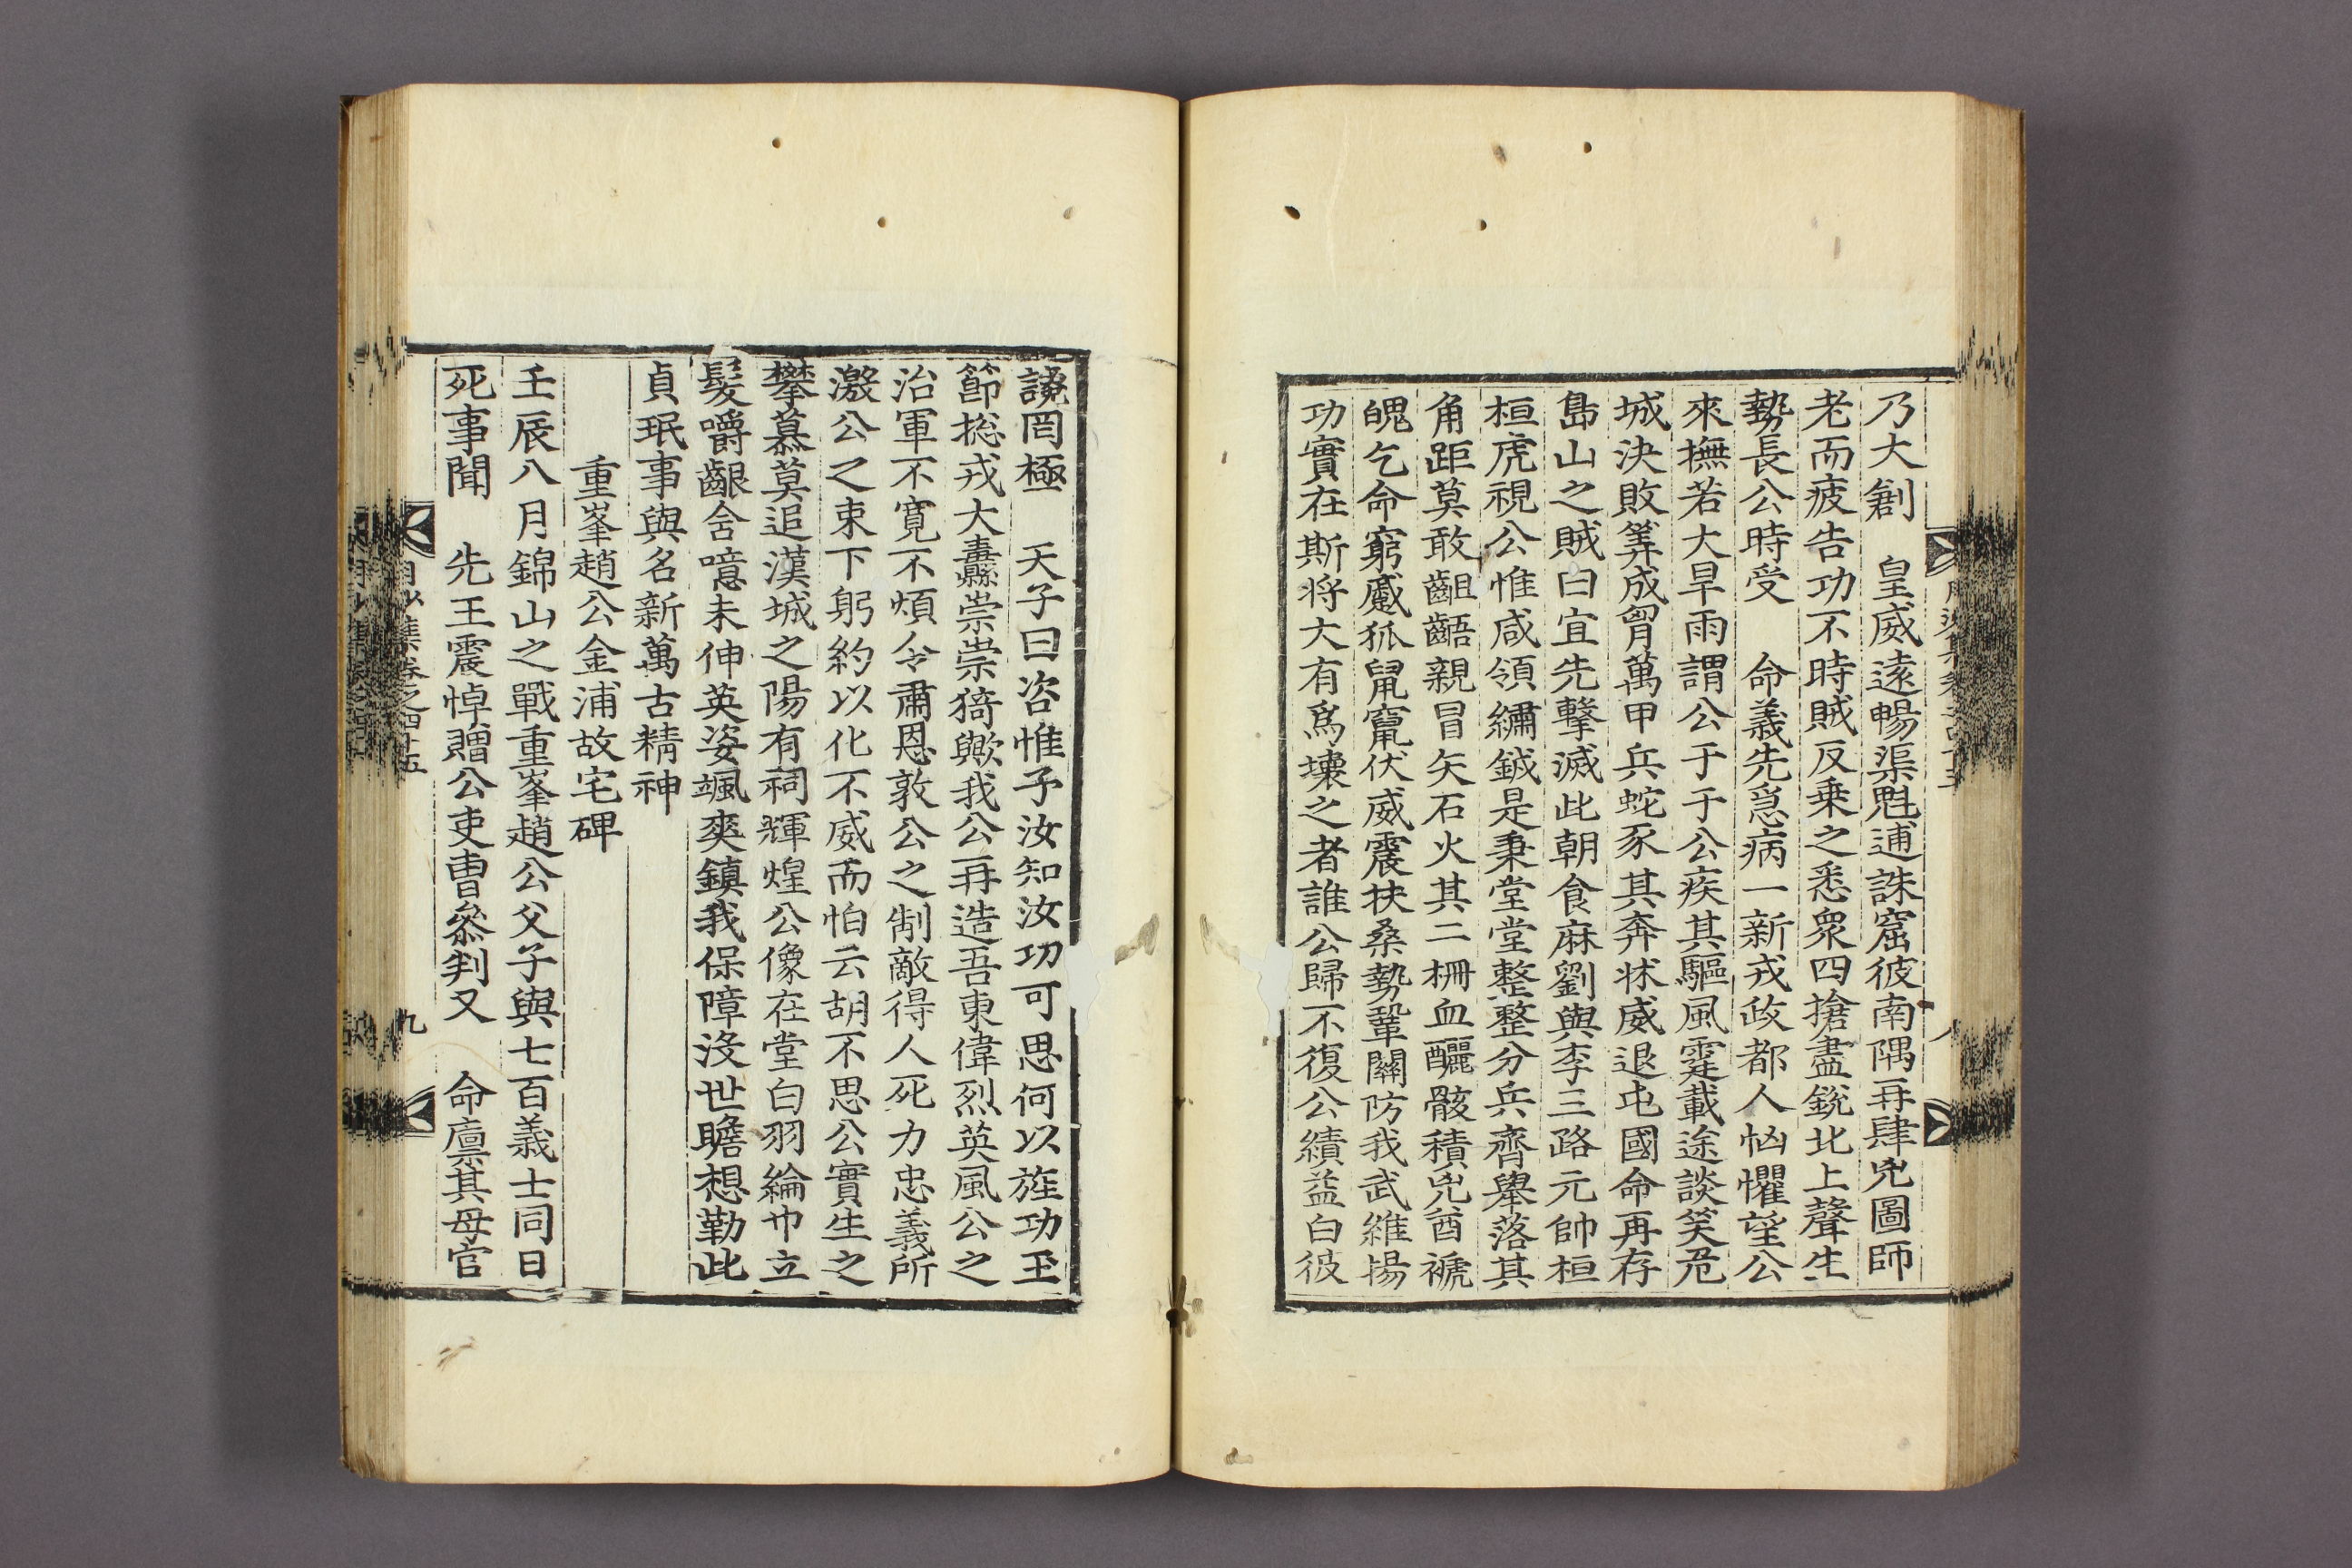 乃大創　皇威遠暢渠魁逋誅窟彼南隅再肆兇圖師
老而疲告功不時賊反乗之悉衆四搶盡銳北上聲生
勢長公時受　命義先急病一新戎政都人恟懼望公
來撫若大旱雨謂公于于公疾其驅風霆載途談笑危
城決敗筭成胷萬甲兵蛇豕其奔怵威退屯國命再存
島山之賊曰宜先擊滅此朝食麻劉與李三路元帥桓
桓虎視公惟咸領繡鉞是秉堂堂整整分兵齊舉落其
角距莫敢齟齬親冒矢石火其二柵血釃骸積兇酋褫
魄乞命窮蹙狐鼠竄伏威震扶桑勢鞏關防我武維揚
功實在斯將大有爲壞之者誰公歸不復公績益白彼
讒罔極　天子曰咨惟予汝知汝功可思何以旌功玉
節捴戎大纛崇崇猗歟我公再造吾東偉烈英風公之
治軍不寛不煩令肅恩敦公之制敵得人死力忠義所
激公之束下躬約以化不威而怕云胡不思公實生之
攀慕莫追漢城之陽有祠輝煌公像在堂白羽綸巾立
髮嚼齦含噫未伸英姿颯爽鎮我保障沒世瞻想勒此
貞珉事與名新萬古精神
重峯趙公金浦故宅碑
壬辰八月錦山之戰重峯趙公父子與七百義士同日
死事聞　先王震悼贈公吏曹叅判又　命廪其母官
集卷之四十五
九
八